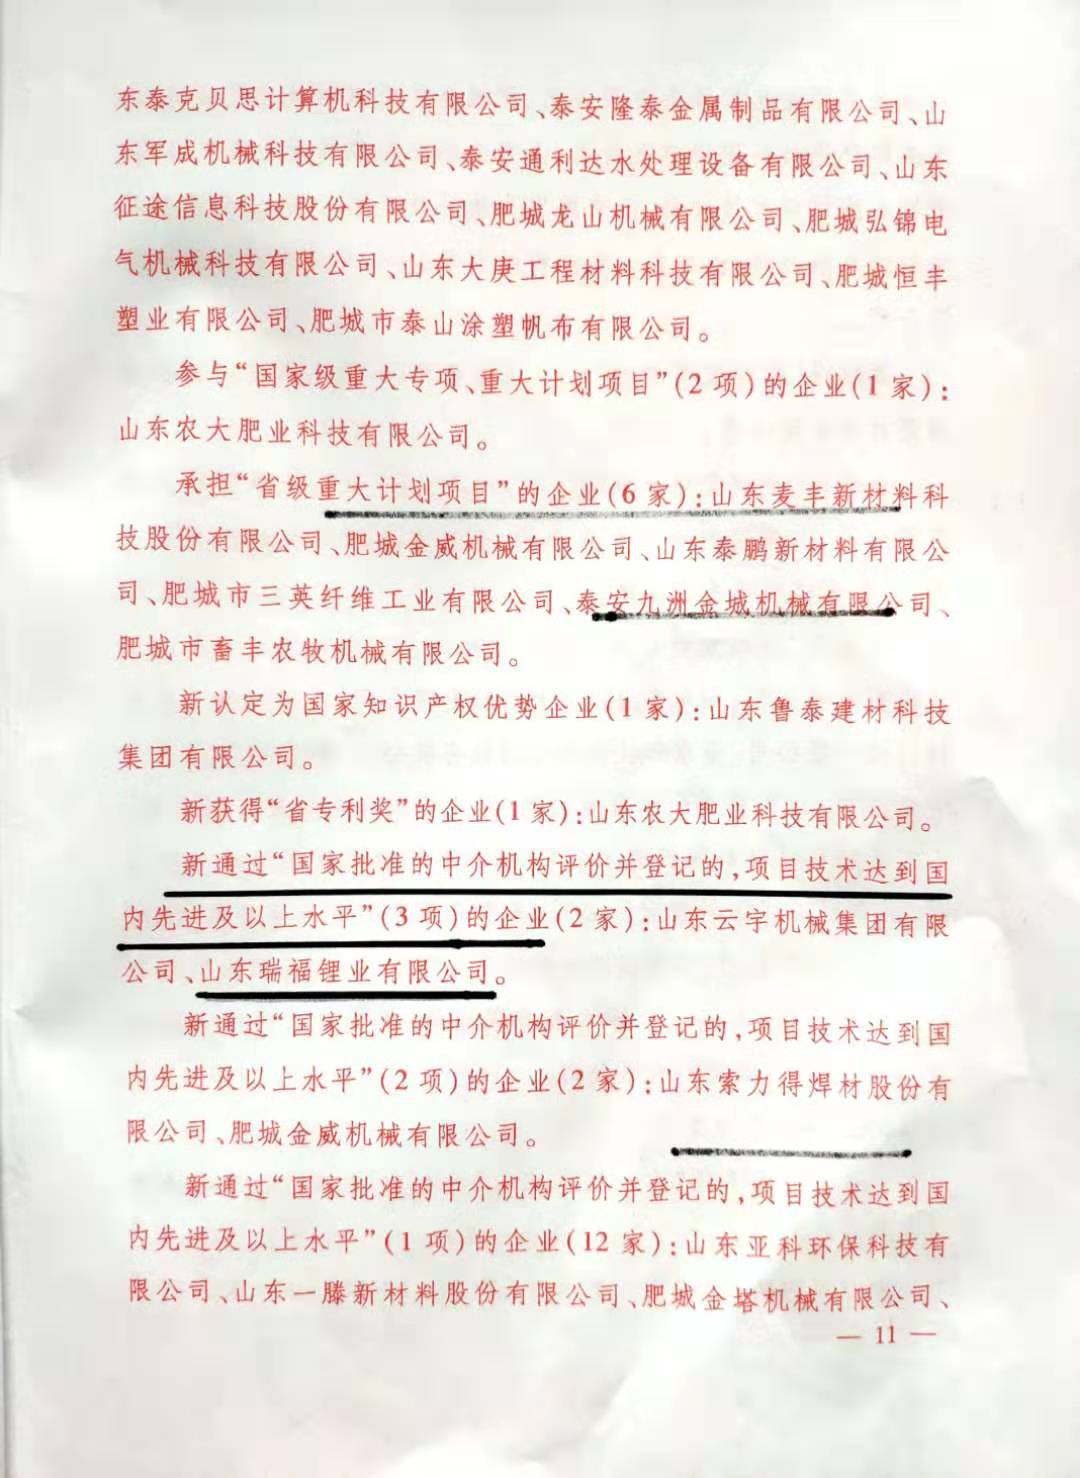 东泰克贝思计算机科技有限公司、泰安隆泰金属制品有限公司、山
东军成机械科技有限公司、泰安通利达水处理设备有限公司、山东
征途信息科技股份有限公司、肥城龙山机械有限公司、肥城弘锦电
气机械科技有限公司、山东大庚工程材料科技有限公司、肥城恒丰
塑业有限公司、肥城市泰山涂塑帆布有限公司。
参与“国家级重大专项、重大计划项目”(2项)的企业(1家):
山东农大肥业科技有限公司。
承担“省级重大计划项目”的企业(6家):山东麦丰新材料科
技股份有限公司、肥城金威机械有限公司、山东泰鹏新材料有限公
司、肥城市三英纤维工业有限公司、泰安九洲金城机械有限公司、
肥城市畜丰农牧机械有限公司。
新认定为国家知识产权优势企业(1家):山东鲁泰建材科技
集团有限公司。
新获得“省专利奖”的企业(1家):山东农大肥业科技有限公司。
新通过“国家批准的中介机构评价并登记的,项目技术达到国
内先进及以上水平”(3项)的企业(2家):山东云宇机械集团有限
公司、山东瑞福锂业有限公司。
新通过“国家批准的中介机构评价并登记的,项目技术达到国
内先进及以上水平”(2项)的企业(2家):山东索力得焊材股份有
限公司、肥城金威机械有限公司。
新通过“国家批准的中介机构评价并登记的,项目技术达到国
内先进及以上水平”(1项)的企业(12家):山东亚科环保科技有
限公司、山东一滕新材料股份有限公司、肥城金塔机械有限公司、
— 11 —